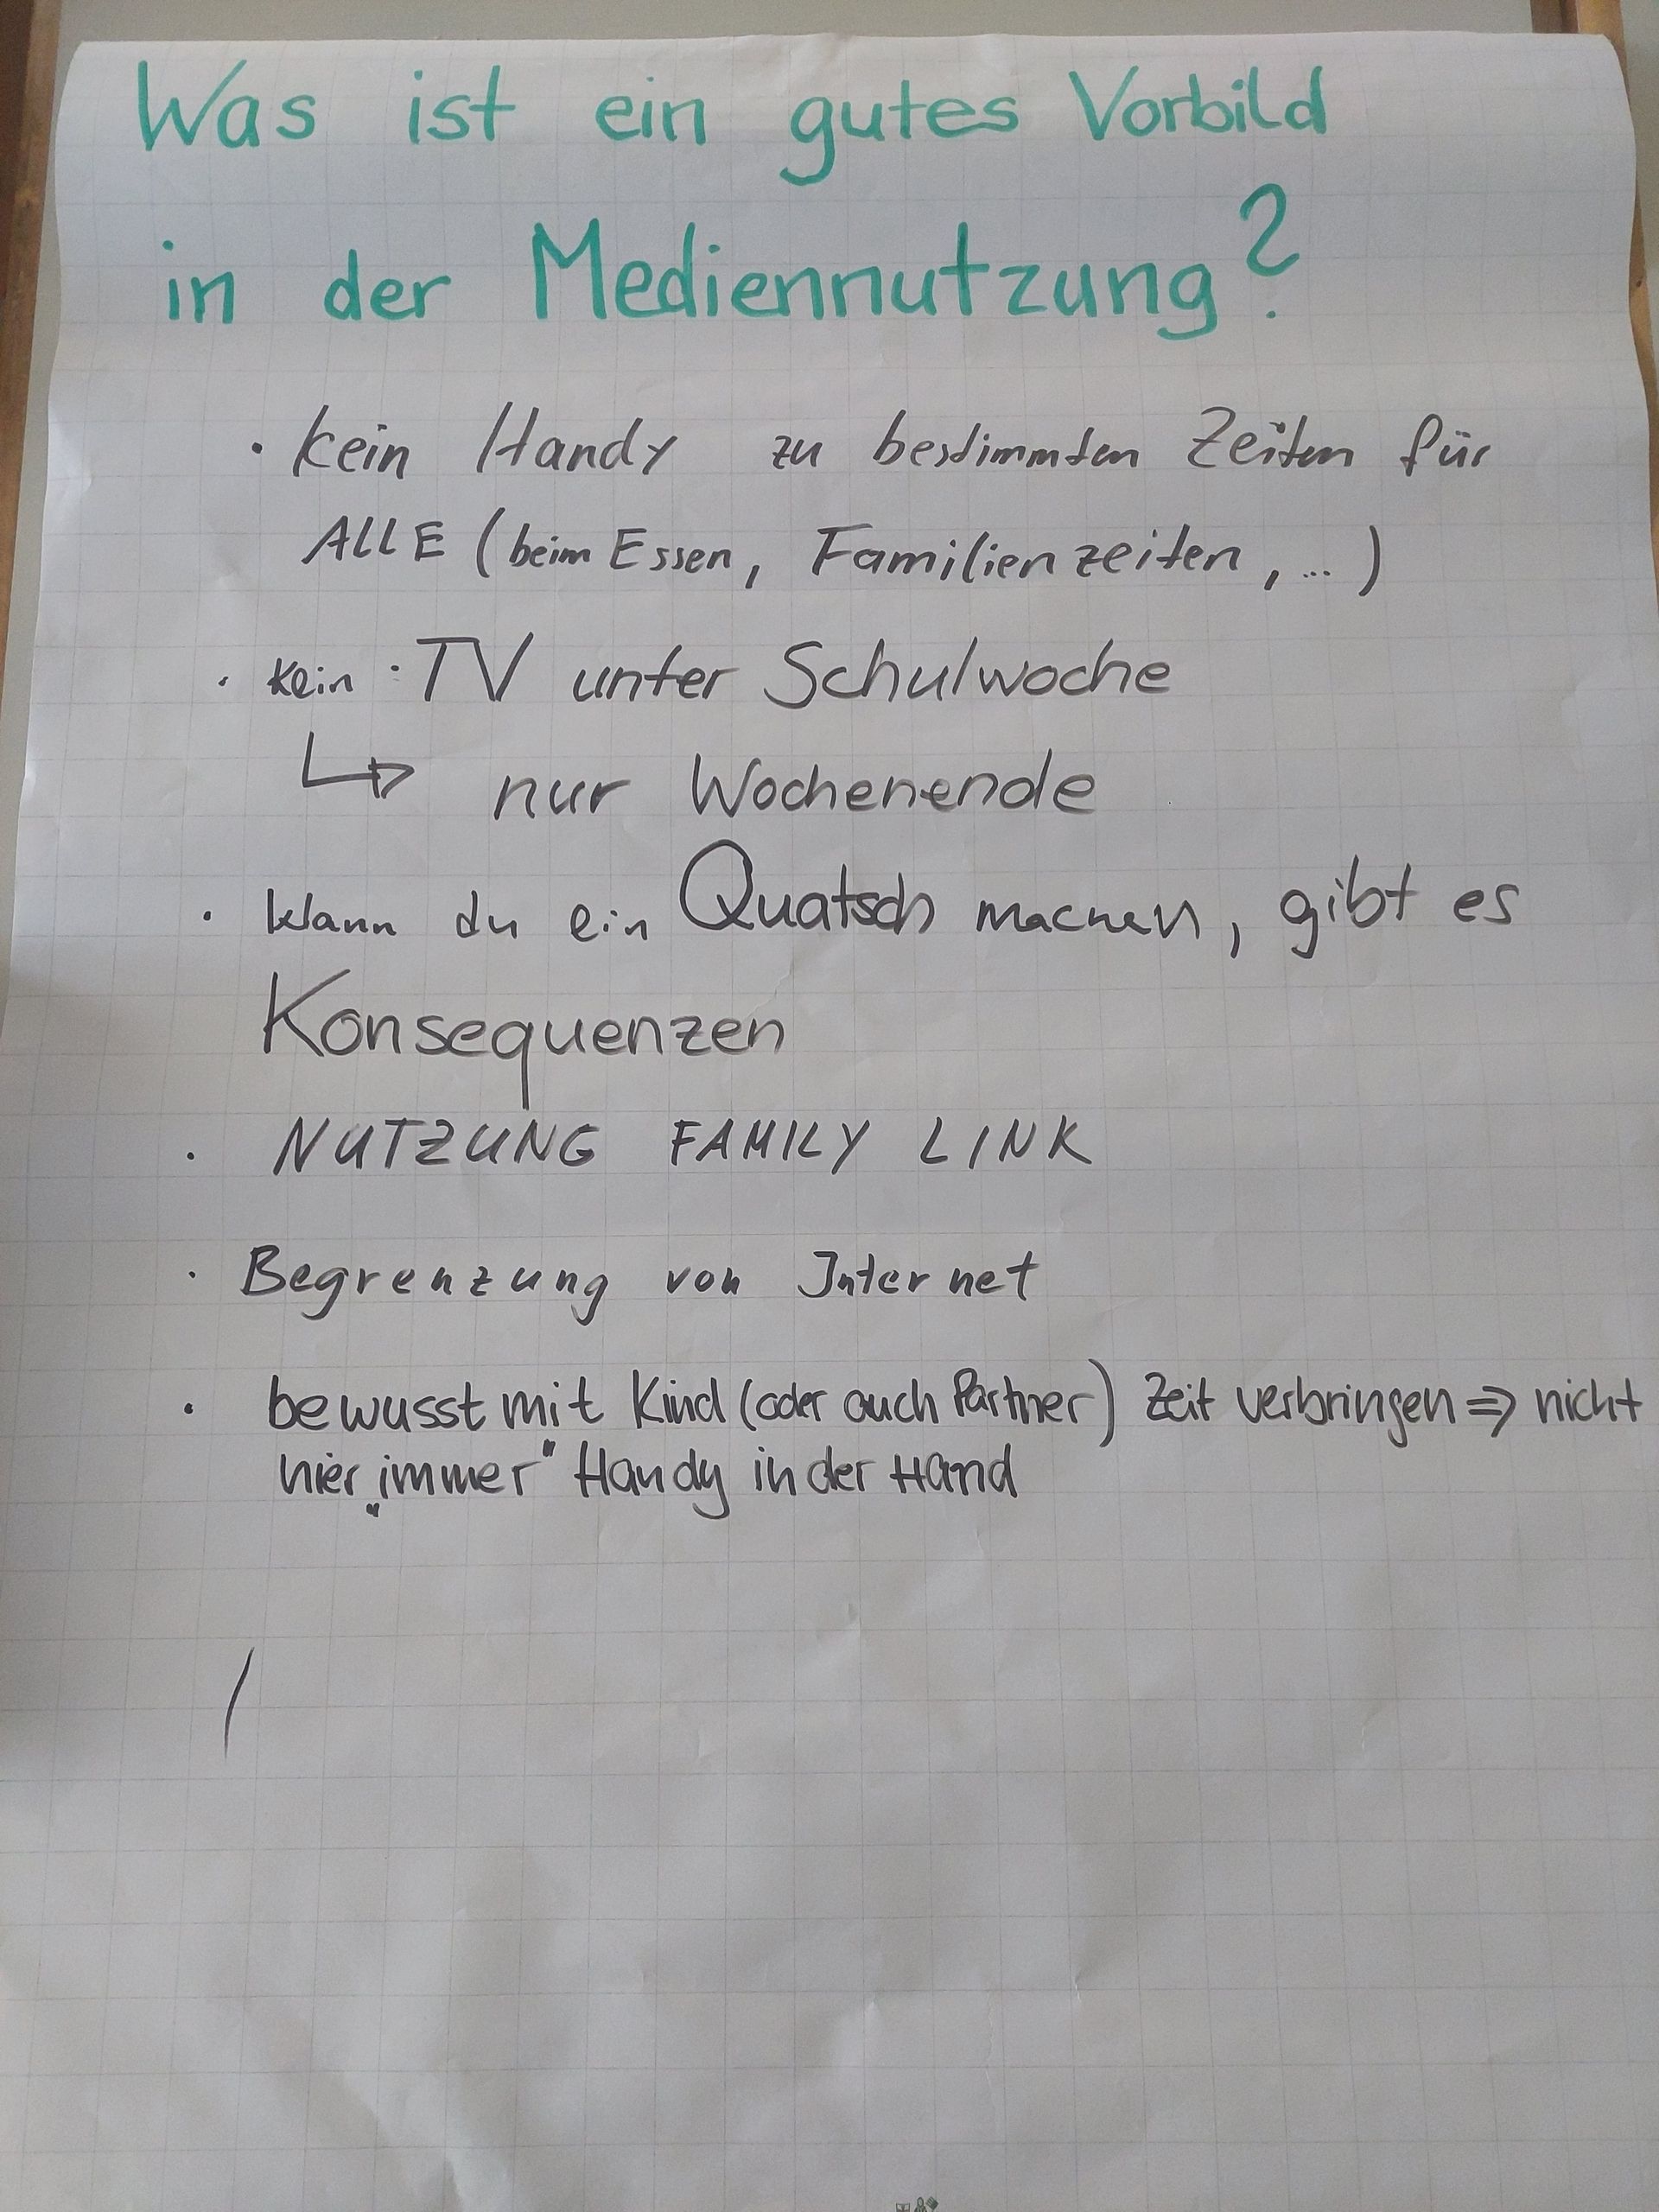 Was ist ein gutes Vorbild
in der Mediennutzung?
· kein Handy zu bestimmten Zeiten für
ALLE (beim Essen, Familienzeiten, ...)
· kein TV unter Schulwoche
↳ nur Wochenende
· Wann du ein Quatsch machen, gibt es
Konsequenzen
· NUTZUNG FAMILY LINK
· Begrenzung von Internet
· bewusst mit Kind (oder auch Partner) Zeit verbringen ⇒ nicht
hier „immer" Handy in der Hand